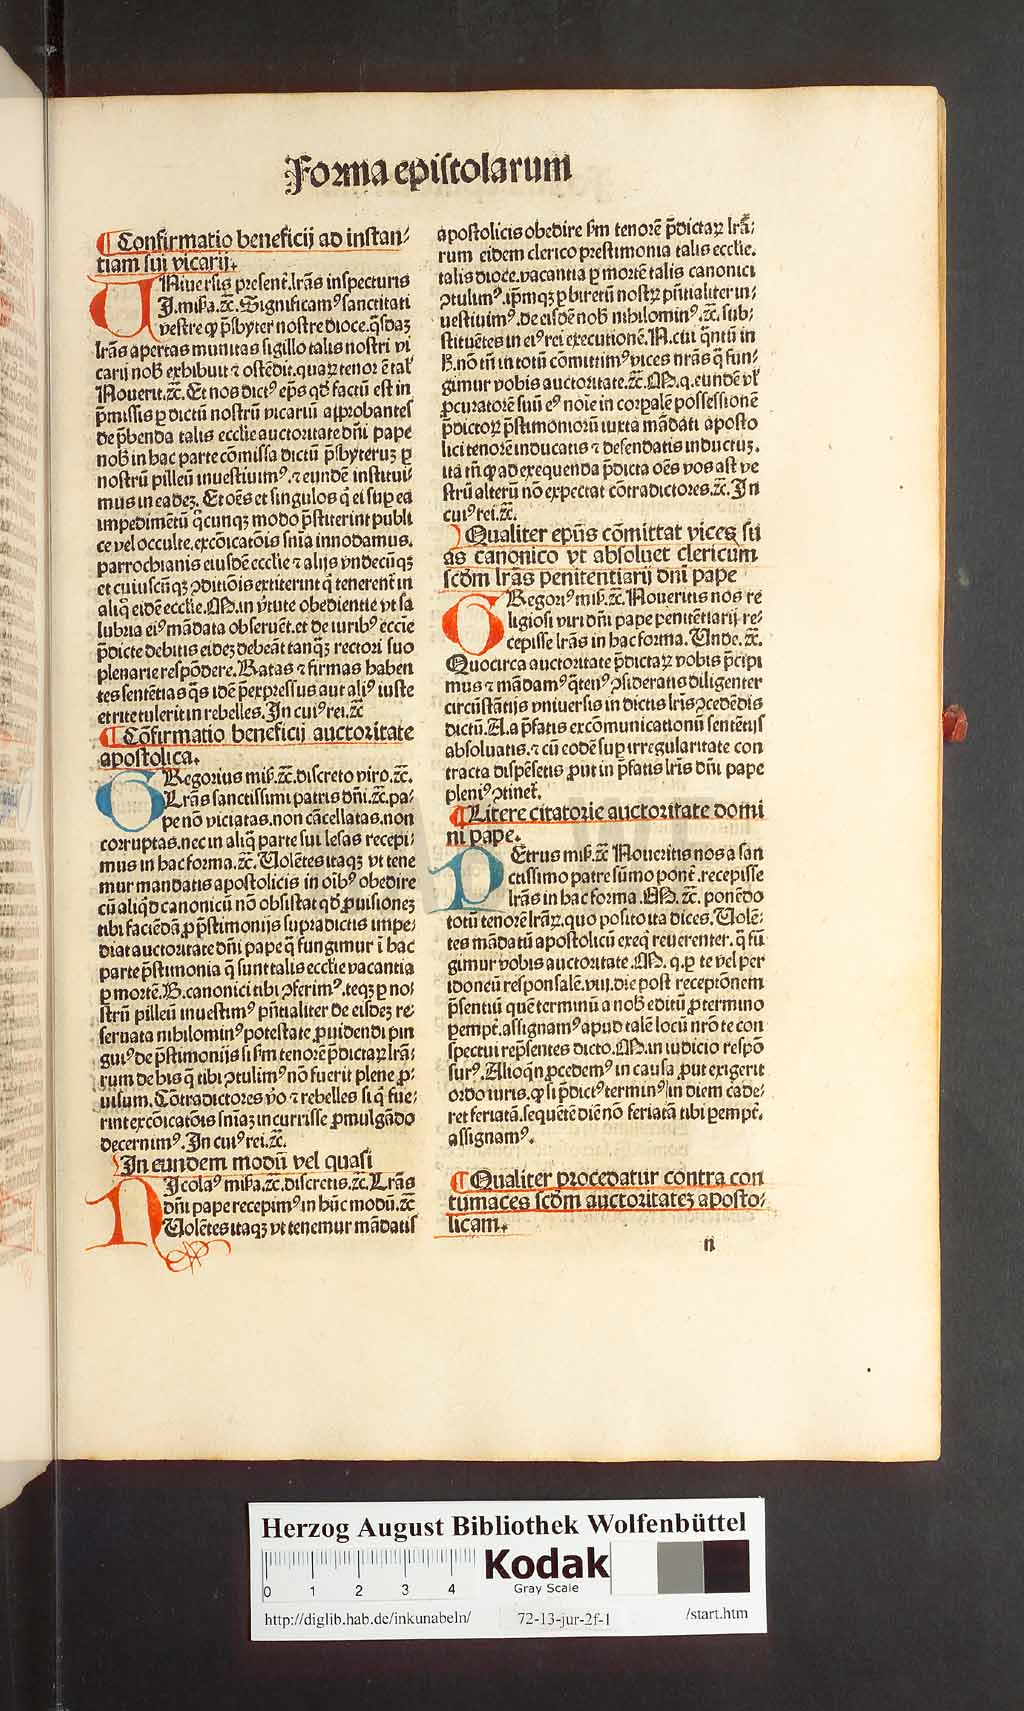 Forma epistolarum
¶ Confirmatio beneficij ad instan⸗
tiam sui vicarij.
UNiuersis present̃.lrãs inspecturis
J.mis̃a.⁊c̃.Significamꝰ sanctitati
vestre ꝙ p̃sbyter nostre dioce.q̃sdaȝ
lrãs apertas munitas sigillo talis nostri vi
carij nob̃ exhibuit ⁊ ostẽdit.quaꝝ tenor ẽ tal̃
Nouerit.⁊c̃. Et nos dictꝰ ep̃s qđ factũ est in
p̃missis ꝑ dictũ nostrũ vicariũ approbantes
de p̃benda talis ecclie auctoritate dñi pape
nob̃ in hac parte cõmissa dictũ p̃sbyteruȝ ꝑ
nostrũ pilleũ inuestiuimꝰ.⁊ eundẽ institui⸗
mus in eadeȝ. Et oẽs et singulos q̃ ei suꝑ ea
impedimẽtũ q̃cunqȝ modo p̃stiterint publi
ce vel occulte.excõicatõis sñia innodamus.
parrochianis eiusdẽ ecclie ⁊ alijs vndecũqȝ
et cuiuscũqȝ ꝯditiõis extiterint q̃ tenerent̃ in
aliq̃ eidẽ ecclie.M.in v̾tute obedientie vt sa
lubria eiꝰ mãdata obseruẽt.et de iuribꝰ eccĩe
p̃dicte debitis eideȝ debeãt tanq̃ȝ rectori suo
plenarie respõdere. Ratas ⁊ firmas haben
tes sentẽtias q̃s idẽ p̃expressus aut aliꝰ iuste
et rite tulerit in rebelles. In cuiꝰ rei.⁊c̃
¶ Cõfirmatio beneficij auctoritate
apostolica.
GRegorius mis̃.⁊c̃.discreto viro.⁊c̃.
Lrãs sanctissimi patris dñi.⁊c̃.pa⸗
pe nõ viciatas.non cãcellatas.non
corruptas.nec in aliq̃ parte sui lesas recepi⸗
mus in hac forma.⁊c̃. Uolẽtes itaqȝ vt tene
mur mandatis apostolicis in oĩbꝰ obedire
cũ aliq̃d canonicũ nõ obsistat qđ ꝓuisioneȝ
tibi faciẽdã ꝓ p̃stimonijs supradictis impe⸗
diat auctoritate dñi pape q̃ fungimur ĩ hac
parte p̃stimonia q̃ sunt talis ecclie vacantia
ꝑ mortẽ.B.canonici tibi ꝯferimꝰ.teqȝ ꝑ no⸗
strũ pilleũ inuestimꝰ p̃ñtialiter de eisdeȝ re⸗
seruata nihilominꝰ potestate ꝓuidendi pin
guiꝰ de p̃stimonijs si s̃m tenorẽ p̃dictaꝝ lrã⸗
rum de his q̃ tibi ꝯtulimꝰ nõ fuerit plene ꝓ⸗
uisum. Cõtradictores ṽo ⁊ rebelles si q̃ fue⸗
rint excõicatõis sñiaȝ incurrisse ꝓmulgãdo
decernimꝰ. In cuiꝰ rei.⁊c̃.
In eundem modũ vel quasi
NIcolaꝰ mis̃a.⁊c̃.discretis.⁊c̃. Lrãs
dñi pape recepimꝰ in hũc modũ.⁊c̃
Uolẽtes itaqȝ vt tenemur mãdatis
apostolicis obedire s̃m tenorẽ p̃dictaꝝ lrã⸗
rum eidem clerico prestimonia talis ecclie.
talis dioce.vacantia ꝑ mortẽ talis canonici
ꝯtulimꝰ.ip̃mqȝ ꝑ biretũ nostrꝝ p̃ñtialiter in⸗
uestiuimꝰ.de eisdẽ nob̃ nihilomin̾.⁊c̃. sub⸗
stituẽtes in eiꝰ rei executionẽ.N.cui q̃ntũ in
h̃.nõ tñ in totũ cõmittimꝰ vices nr̃as q̃ fun⸗
gimur vobis auctoritate.⁊c̃.M.q.eundẽ vl̃
ꝓcuratorẽ suũ eꝰ noĩe in corꝑalẽ possessionẽ
p̃dictoꝝ p̃stimoniorũ iuxta mãdati aposto
lici tenorẽ inducatis ⁊ defendatis inductuȝ.
ita tñ ꝙ ad exequenda p̃dicta oẽs vos ast ve
strũ alterũ nõ expectat cõtradictores.⁊c̃. In
cuiꝰ rei.⁊c̃.
Qualiter ep̃us cõmittat vices su
as canonico vt absoluet clericum
scđm lrãs penitentiarij dñi pape
GRegoriꝰ mis̃.⁊c̃. Noueritis nos re
ligiosi viri dñi pape penitẽtiarij re⸗
cepisse lrãs in hac forma. Unde. ⁊c̃.
Quocirca auctoritate p̃dictaꝝ vobis p̃cipi
mus ⁊ mãdamꝰ q̃tenꝰ ꝯsideratis diligenter
circũstãtijs vniuersis in dictis lr̃is ꝯcedẽdis
dictũ. A.a p̃fatis excõmunicationũ sentẽtijs
absoluatis.⁊ cũ eodẽ suꝑ irregularitate con
tracta dispẽsetis ꝓut in p̃fatis lr̃is dñi pape
pleniꝰ ꝯtinet̃.
¶ Litere citatorie auctoritate domi
ni pape.
PEtrus mis̃.⁊c̃ Noueritis nos a san
ctissimo patre sũmo pont̃.recepisse
lrãs in hac forma .M. ⁊c̃. ponẽdo
totũ tenorẽ lrãꝝ.quo posito ita dices. Uolẽ⸗
tes mãdatũ apostolicũ exeq̃ reuerenter.q̃ fũ
gimur vobis auctoritate.M. q.ꝑ te vel per
idoneũ responsalẽ.viij.die post receptiõnem
p̃sentiũ quẽ terminũ a nob̃ editũ ꝓ termino
ꝑempt̃.assignamꝰ apud talẽ locũ nr̃o te con
spectui rep̃sentes dicto.M.in iudicio respõ
surꝰ. Alioq̃n ꝓcedemꝰ in causa ꝓut exigerit
ordo iuris.ꝙ si p̃dictꝰ terminꝰ in diem cade⸗
ret feriatã.sequẽtẽ diẽ nõ feriatã tibi ꝑempt̃.
assignamꝰ.
¶ Qualiter procedatur contra con
tumaces scđm auctoritateȝ aposto⸗
licam.
n
Herzog August Bibliothek Wolfenbüttel
0 1 2 3 4
Kodak
Gray Scale
http://diglib.hab.de/inkunabeln/ 72-13-jur-2f-1 /start.htm